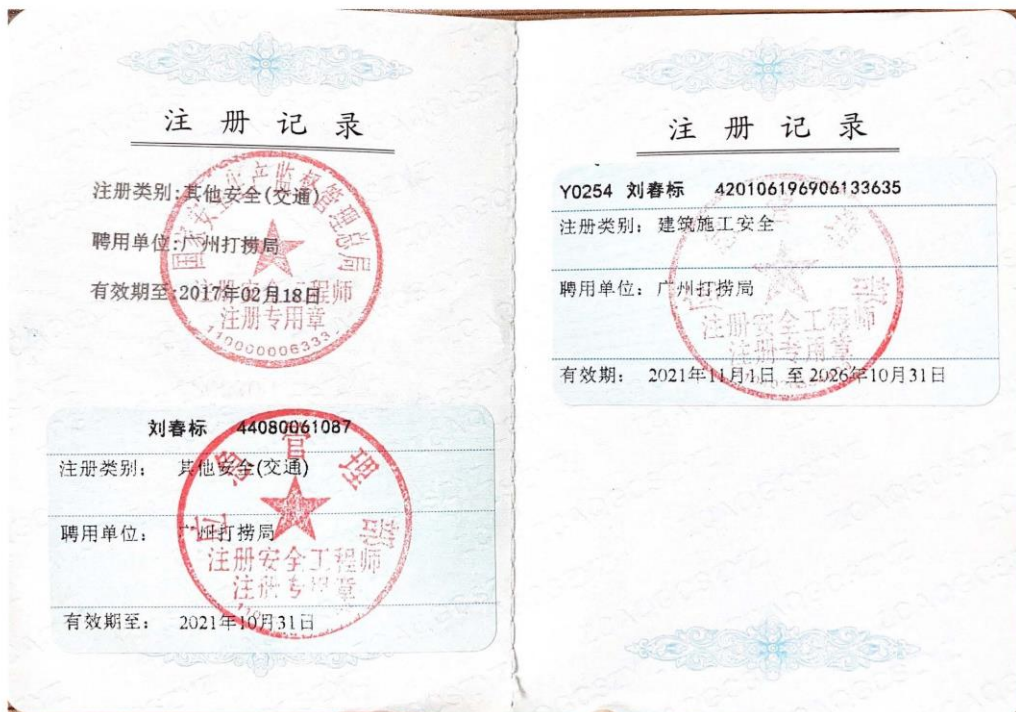 注册记录
注册类别:其他安全(交通)
聘用单位:广州打捞局
有效期至:2017年02月18日
国家安全生产监督管理总局
注册安全工程师
注册专用章
110000006333
刘春标 44080061087
注册类别： 其他安全(交通)
聘用单位： 广州打捞局
有效期至： 2021年10月31日
应急管理部
注册安全工程师
注册专用章
注册记录
Y0254 刘春标 420106196906133635
注册类别： 建筑施工安全
聘用单位： 广州打捞局
有效期： 2021年11月1日 至 2026年10月31日
应急管理部
注册安全工程师
注册专用章